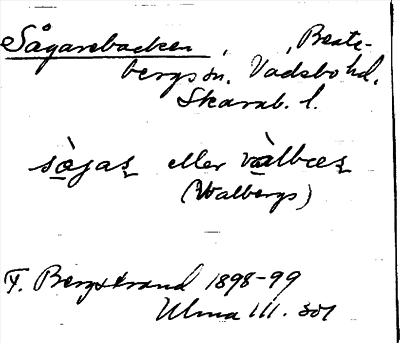 Sågarebacken, , Beate-
bergs sn. Vadsbo hd.
Skarab. l.
sògas eller vàlbæs
(Walbergs)
F. Bergstrand 1898-99
Ulma 111. 301